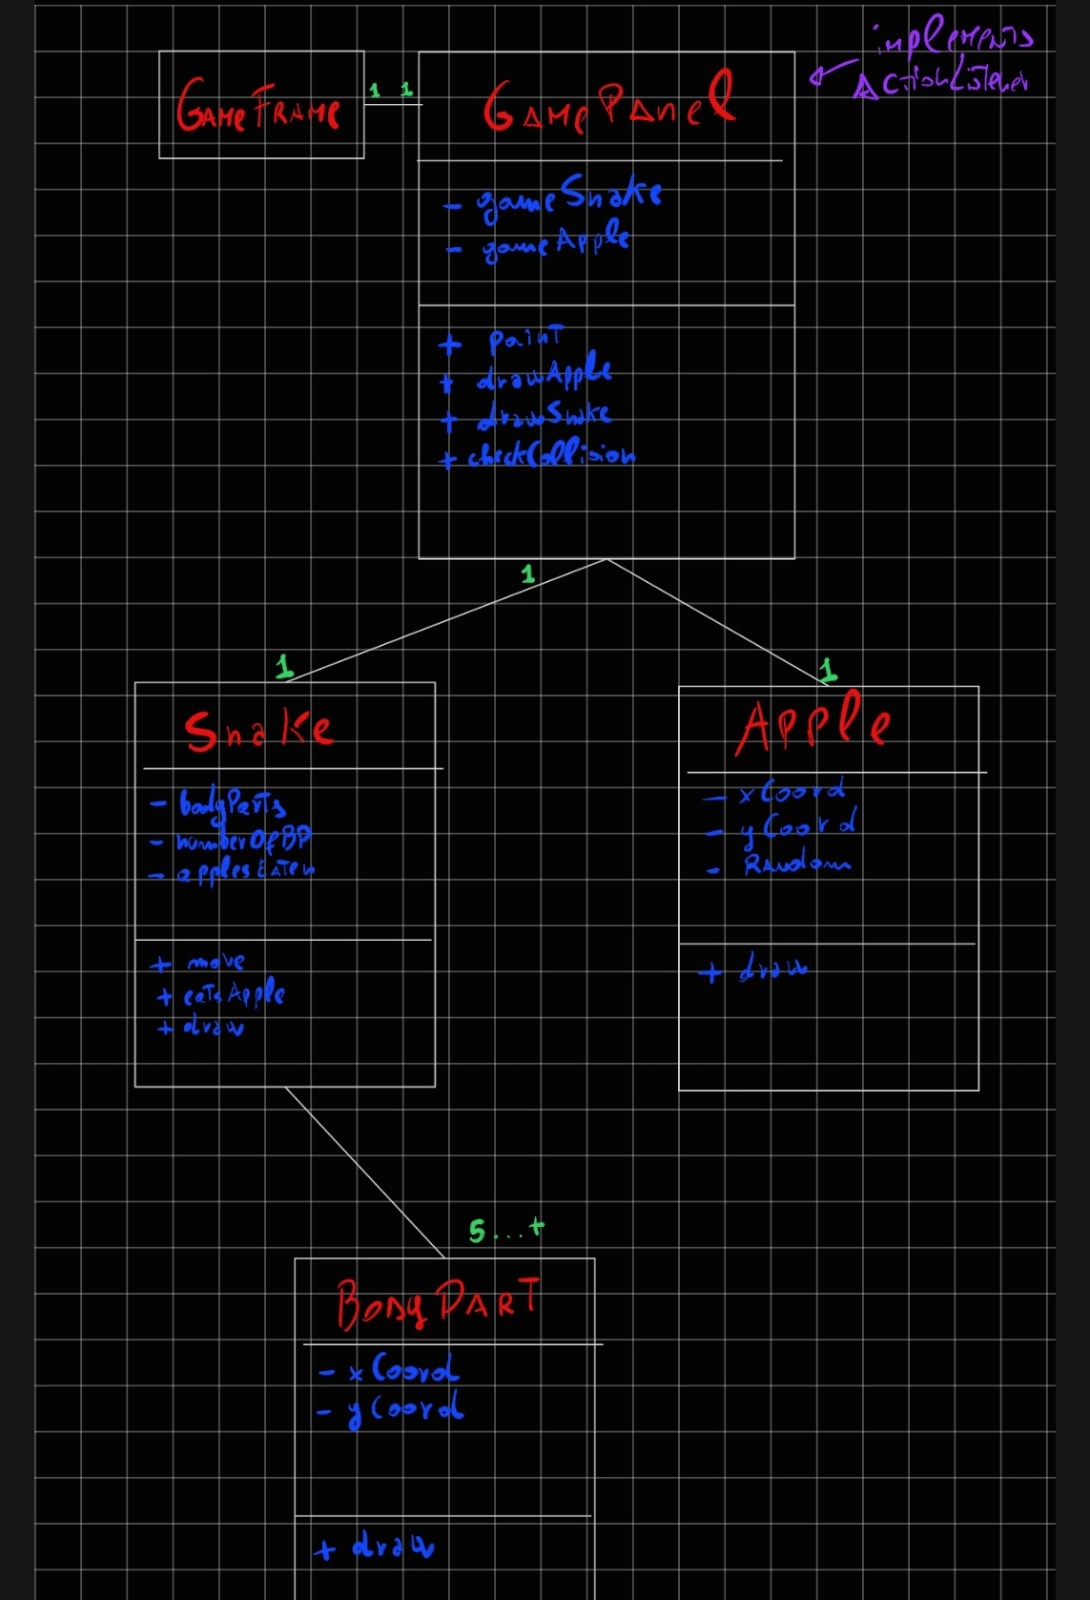 implements
ActionListener
GameFrame
1 1
GamePanel
- gameSnake
- gameApple
+ paint
+ drawApple
+ drawSnake
+ checkCollision
1
1
1
Snake
- bodyParts
- numberOfBP
- applesEaten
+ move
+ eatsApple
+ draw
Apple
- xCoord
- yCoord
- Random
+ draw
5...+
BodyPart
- xCoord
- yCoord
+ draw